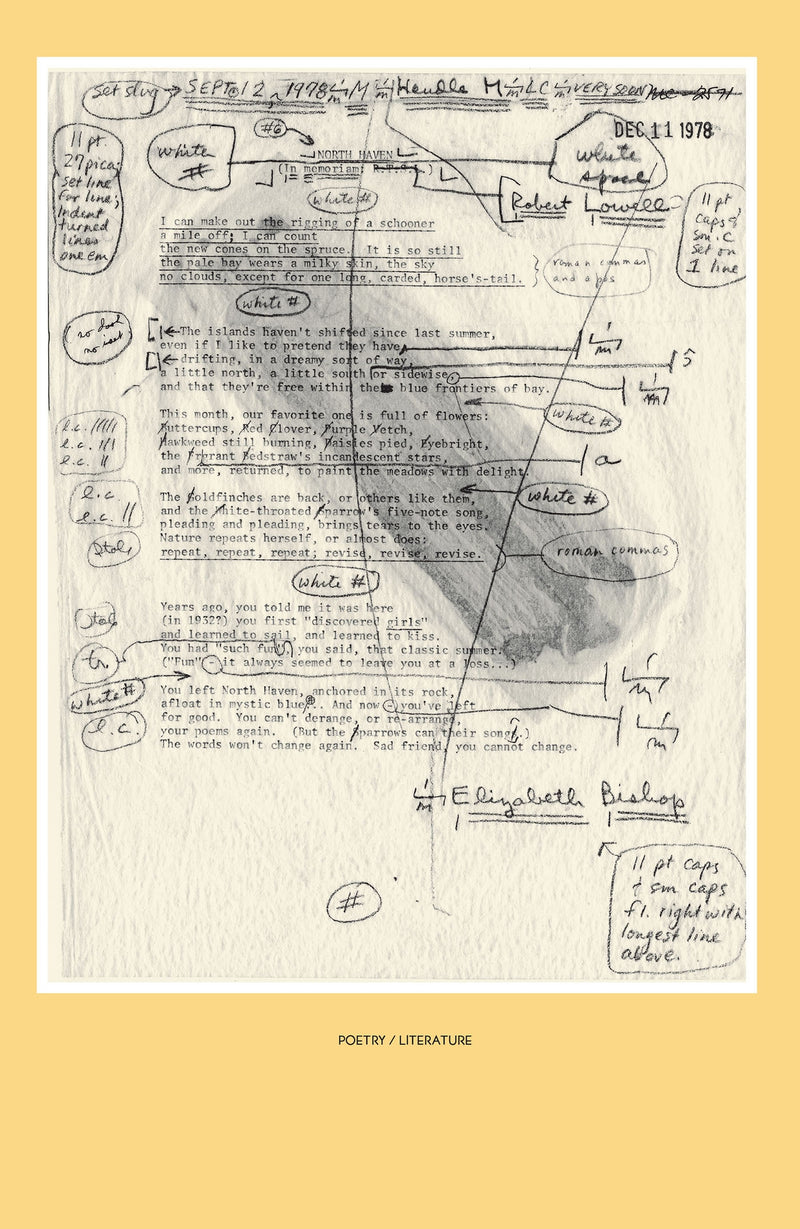 set slug → SEPT 12 1978 M Handle M LC VERY SOON
DEC 11 1978
#6
11 pt.
27 picas
set line
for line;
indent
turned
lines
one em
white
#
NORTH HAVEN
(In memoriam: R.T.S.L.)
white
space
Robert Lowell
11 pt
caps &
sm. c
set on
1 line
white #
I can make out the rigging of a schooner
a mile off; I can count
the new cones on the spruce. It is so still
the pale bay wears a milky skin, the sky
no clouds, except for one long, carded, horse's-tail.
roman commas
and apos
white #
The islands haven't shifted since last summer,
even if I like to pretend they have
drifting, in a dreamy sort of way,
a little north, a little south or sidewise,
and that they're free within the blue frontiers of bay.
white #
This month, our favorite one is full of flowers:
Buttercups, Red Clover, Purple Vetch,
Hawkweed still burning, Daisies pied, Eyebright,
the Frgrant Bedstraw's incandescent stars,
and more, returned, to paint the meadows with delight.
l.c. /////
l.c. ///
l.c. //
a
white #
The Goldfinches are back, or others like them,
and the White-throated Sparrow's five-note song,
pleading and pleading, brings tears to the eyes.
Nature repeats herself, or almost does:
repeat, repeat, repeat; revise, revise, revise.
l.c.
l.c. //
roman commas
white #
Years ago, you told me it was here
(in 1932?) you first "discovered girls"
and learned to sail, and learned to kiss.
You had "such fun", you said, that classic summer.
("Fun"-it always seemed to leave you at a loss...)
tr.
white #
You left North Haven, anchored in its rock,
afloat in mystic blue... And now-you've left
for good. You can't derange, or re-arrange,
your poems again. (But the Sparrows can their song.)
The words won't change again. Sad friend, you cannot change.
l.c.
Elizabeth Bishop
#
11 pt caps
+ sm caps
fl. right with
longest line
above.
POETRY / LITERATURE